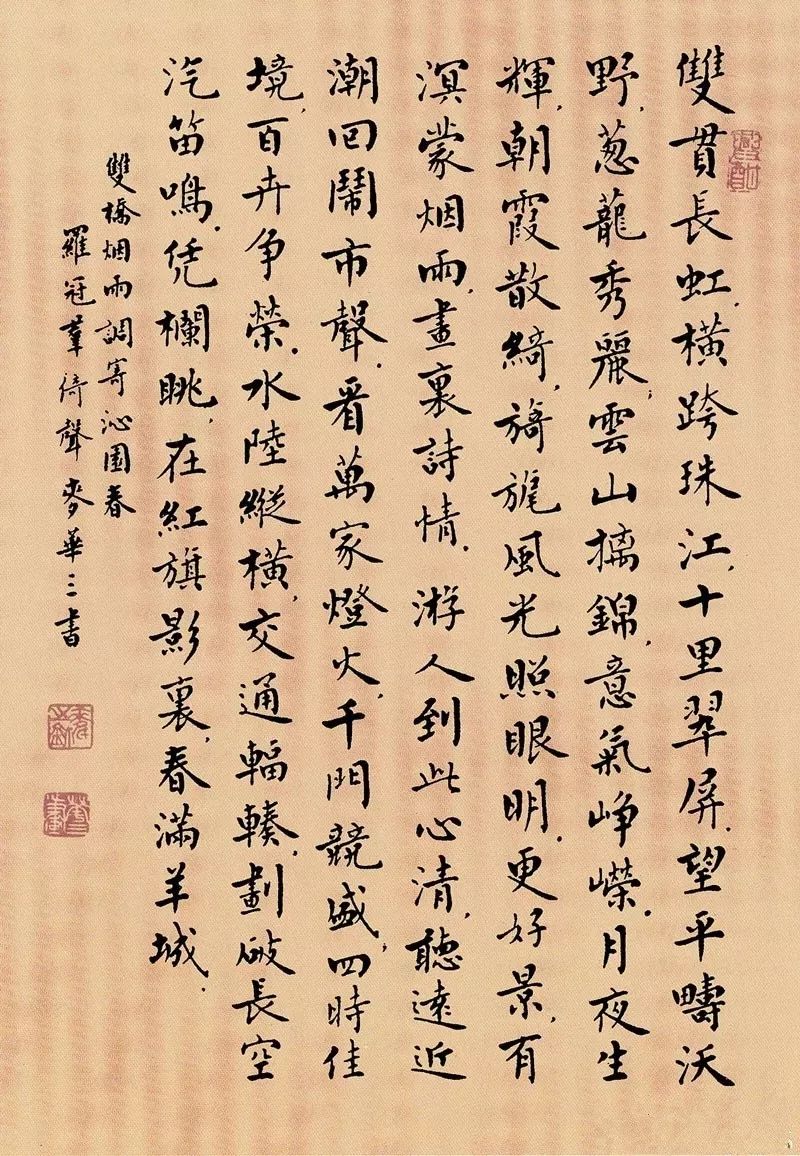 雙貫長虹，橫跨珠江，十里翠屏。望平疇沃
野，葱蘢秀麗；雲山摛錦，意氣崢嶸。月夜生
輝，朝霞散綺，旖旎風光照眼明。更好景，有
溟蒙烟雨，畫裏詩情。游人到此心清，聽遠近
潮回鬧市聲。看萬家燈火，千門競盛，四時佳
境，百卉争榮。水陸縱横，交通輻輳，劃破長空
汽笛鳴。凭欄眺，在紅旗影裏，春滿羊城。
雙橋烟雨調寄沁園春
羅冠羣倚聲麥華三書